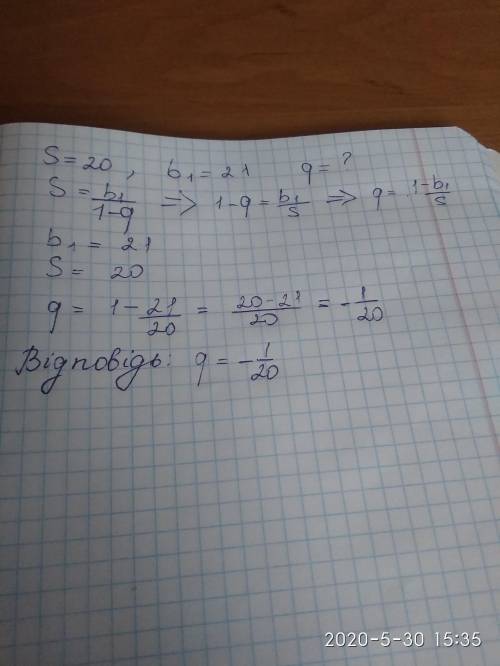 S = 20, b₁ = 21 q = ?
S = b₁/1-q => 1-q = b₁/S => q = 1-b₁/S
b₁ = 21
S = 20
q = 1 - 21/20 = 20-21/20 = -1/20
Відповідь: q = -1/20
2020-5-30 15:35